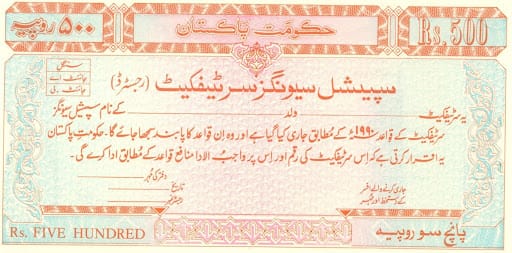 ۵۰۰ روپیہ
حکومت پاکستان
Rs. 500
سنگل
جائنٹ اے
جائنٹ بی
سپیشل سیونگز سرٹیفکیٹ (رجسٹرڈ)
یہ سرٹیفکیٹ ولد کے نام سپیشل سیونگز
سرٹیفکیٹ کے قواعد ۱۹۹۰ء کے مطابق جاری کیا گیا ہے اور وہ ان قواعد کا پابند سمجھا جائے گا۔ حکومت پاکستان
یہ اقرار کرتی ہے کہ اس سرٹیفکیٹ کی رقم اور اس پر واجب الادا منافع قواعد کے مطابق ادا کرے گی۔
جاری کرنے والے افسر دفتر کی مہر
کے دستخط اور مہر تاریخ
رجسٹر نمبر
Rs. FIVE HUNDRED
پانچ سو روپیہ